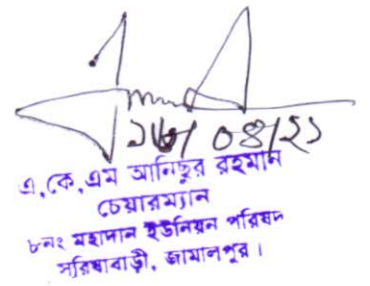 /০৪/২১
এ,কে,এম আনিছুর রহমান
চেয়ারম্যান
৮নং মহাদান ইউনিয়ন পরিষদ
সরিষাবাড়ী, জামালপুর।